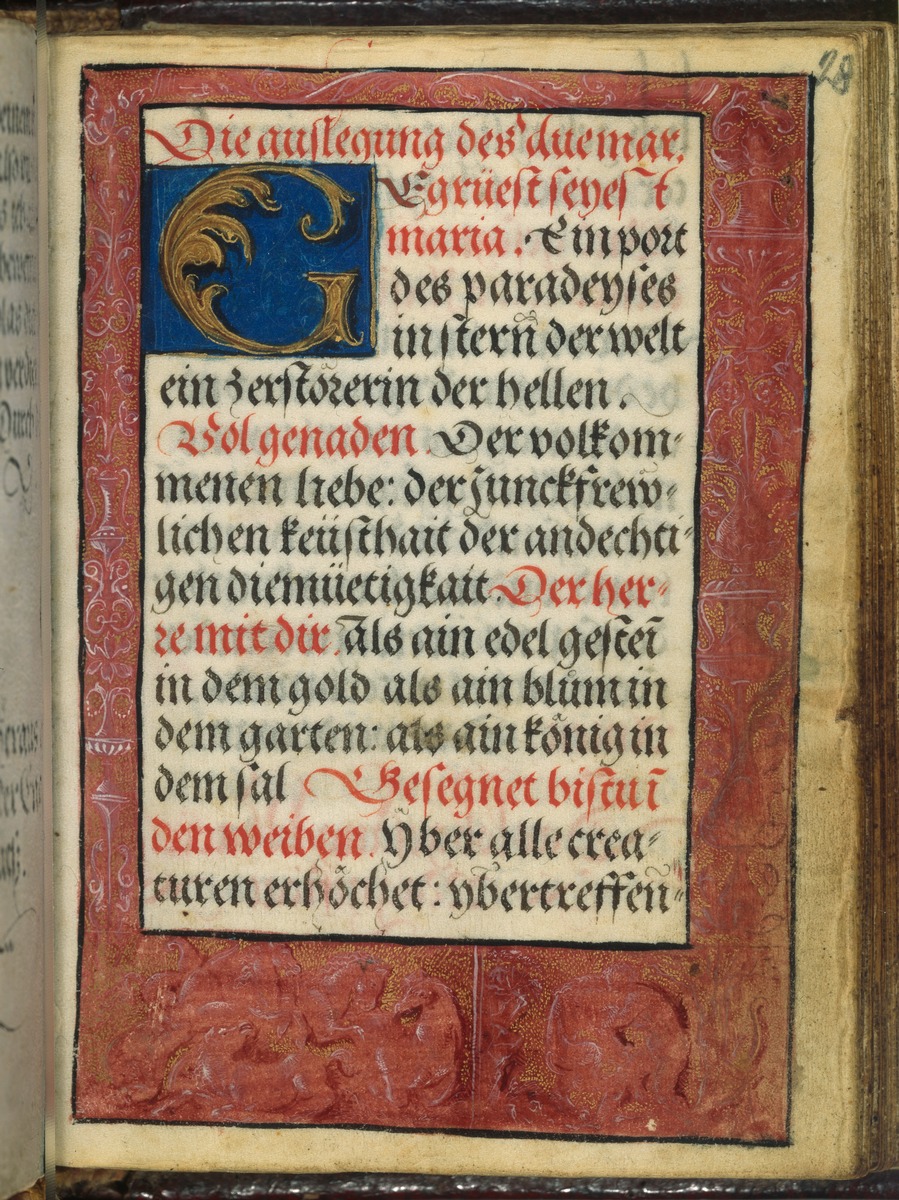 28
Die auslegung des aue mar.
GEgrüest seyest
maria. Ein port
des paradeyses
in stern̄ der welt
ein zerstörerin der hellen.
Vol genaden. Der volkom-
menen liebe: der Junckfrew-
lichen keüsthait der andechti-
gen diemüetigkait. Der her-
re mit dir. Als ain edel gesteī
in dem gold als ain blům in
dem garten: als ain könig in
dem sal Gesegnet bistu ī
den weiben. Yber alle crea-
turen erhöchet: ybertreffen̄-